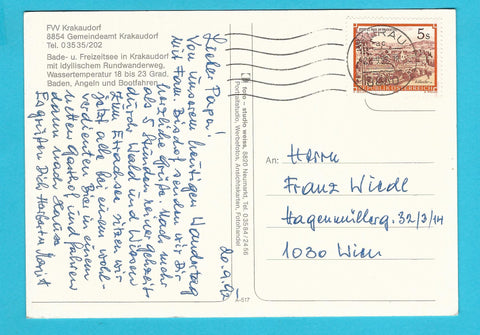 FVV Krakaudorf
8854 Gemeindeamt Krakaudorf
Tel. 03535/202
Bade- u. Freizeitsee in Krakaudorf
mit idyllischem Rundwanderweg,
Wassertemperatur 18 bis 23 Grad.
Baden, Angeln und Bootfahren.
20.9.92
Lieber Papa!
Von unserem heutigen Wandertag
mit Fam. Bischof senden wir Dir
herzliche Grüße. Nach mehr
als 5 Stunden reiner Gehzeit
durch Wald und Wiesen
zum Etrachsee sitzen wir
jetzt alle bei einem wohl-
verdienten Bier in einem
netten Gasthof und fahren
dann nach Hause
Es grüßen Dich Herbert u.
foto - studio weiss, 8820 Neumarkt, Tel. 03584/2466
Portraitstudio, Werbefotos, Ansichtskarten, Fotohandel
KRAU
5 s
REPUBLIK ÖSTERREICH
An:
Herrn
Franz Wiedl
Hagenmüllerg. 32/3/14
1030 Wien